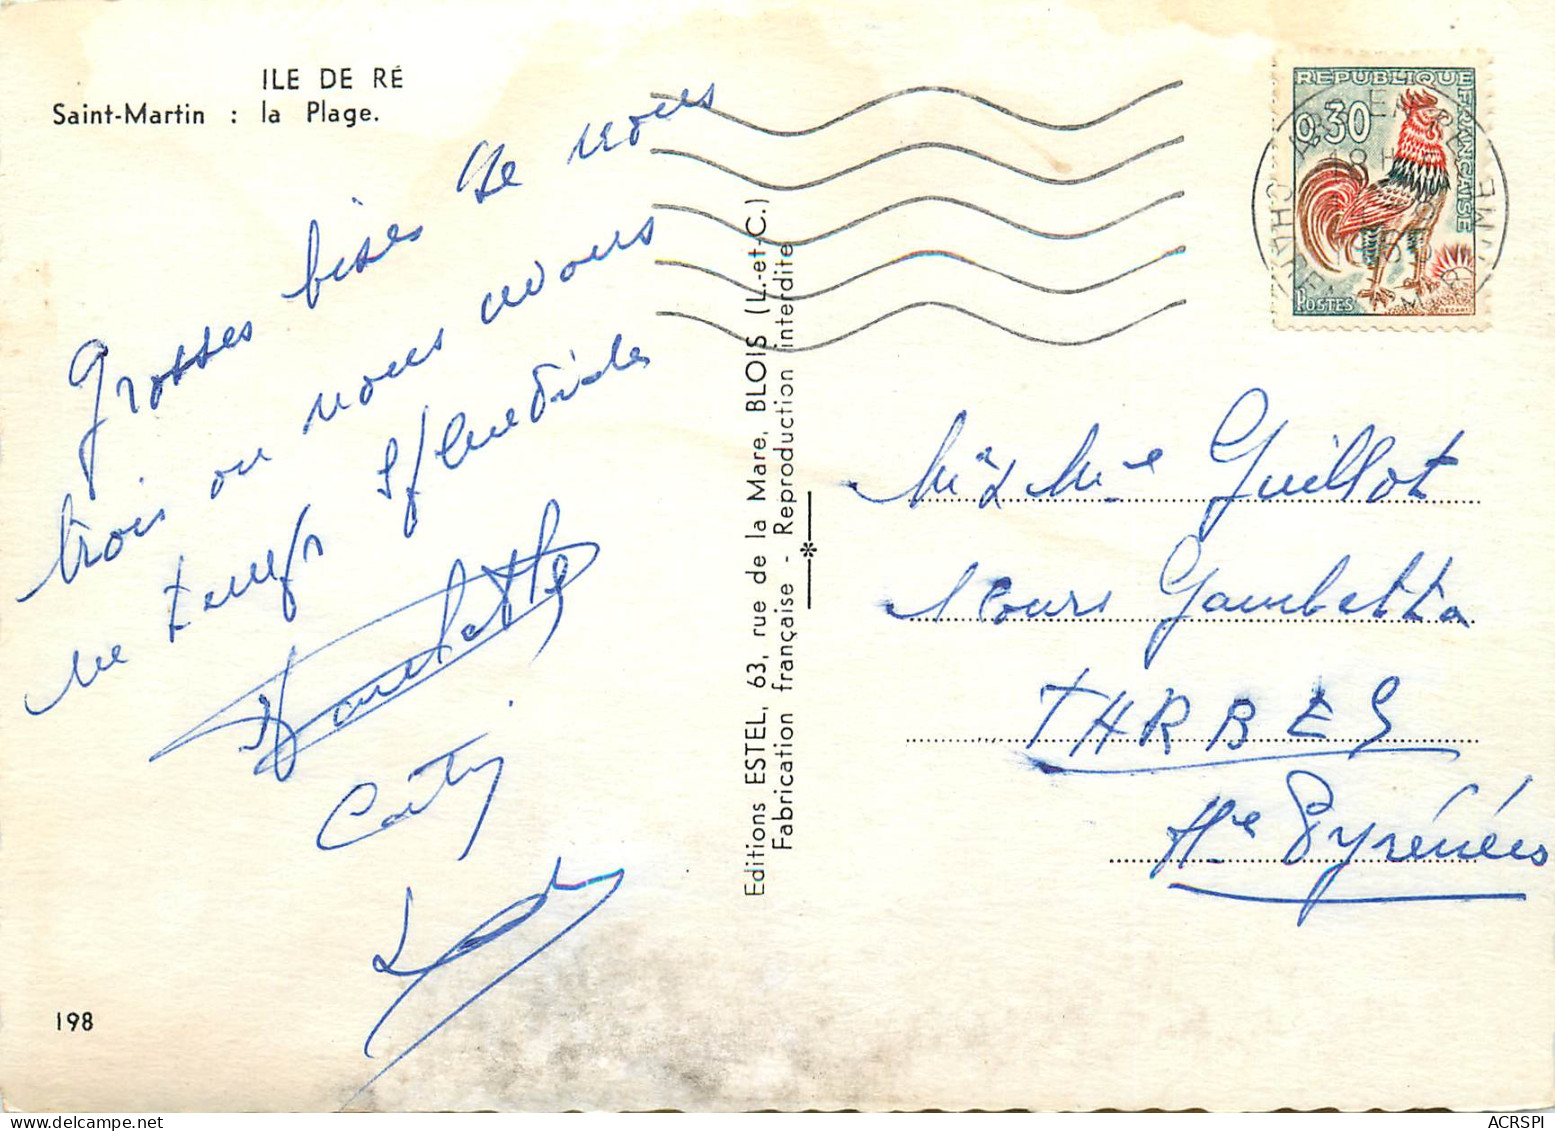 ILE DE RÉ
Saint-Martin : la Plage.
Grosses bises de nous
trois ou nous avons
un temps splendide
Caty
198
Editions ESTEL, 63, rue de la Mare, BLOIS (L.-et-C.)
Fabrication française - Reproduction interdite
REPUBLIQUE FRANÇAISE
0,30
POSTES
DECARIS
Mr & Mme Guillot
Cours Gambetta
TARBES
Hte Pyrénées
ACRSPI